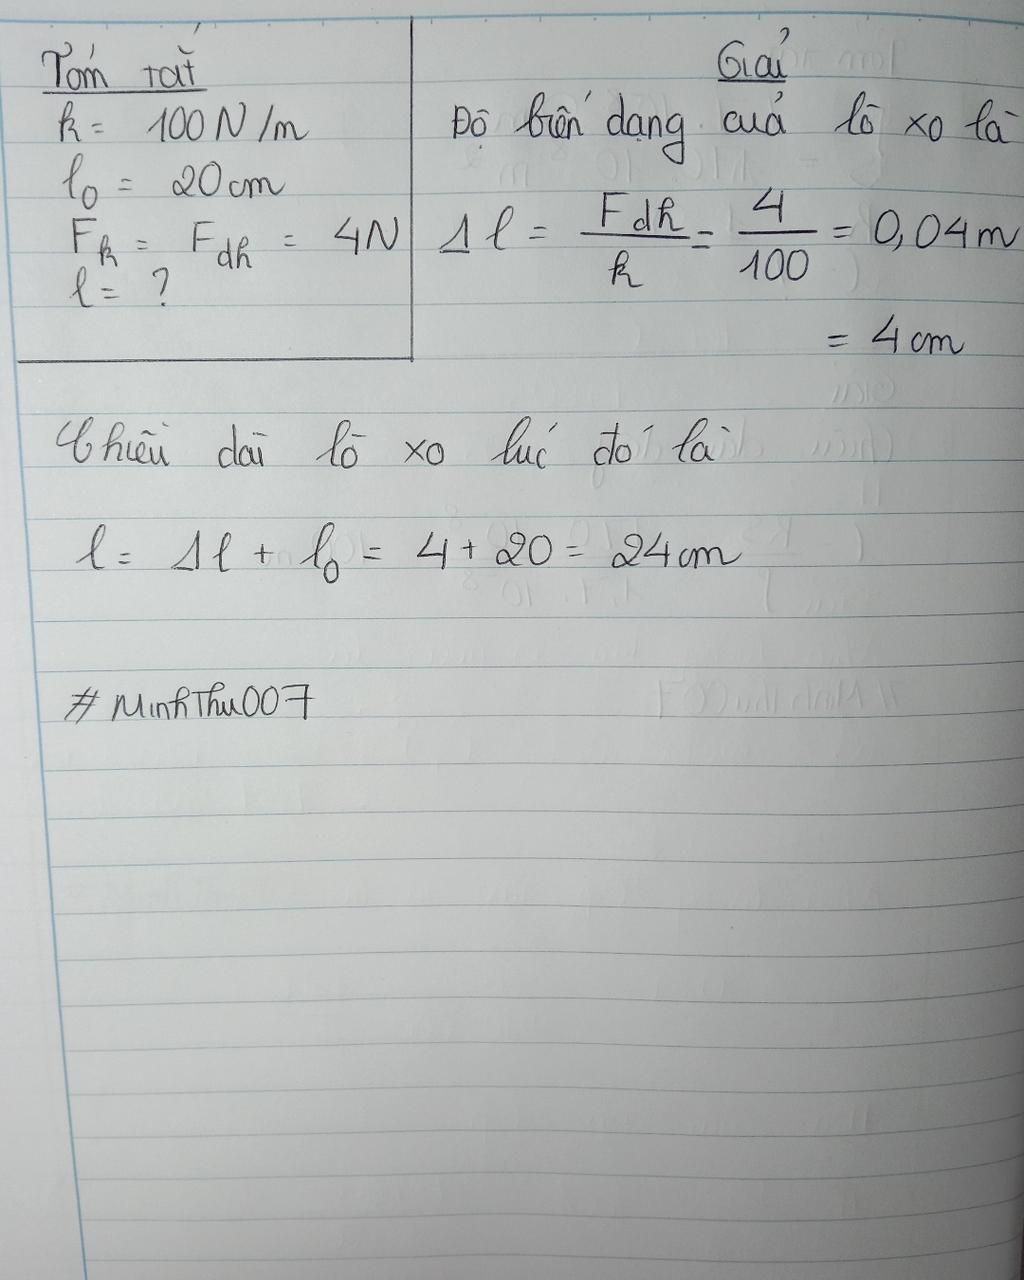 Tóm tắt
k = 100 N/m
l₀ = 20 cm
Fk = Fdh = 4N
l = ?
Giải
Độ biến dạng của lò xo là
Δl = Fdh/k = 4/100 = 0,04 m
= 4 cm
Chiều dài lò xo lúc đó là
l = Δl + l₀ = 4 + 20 = 24 cm
# MinhThu007